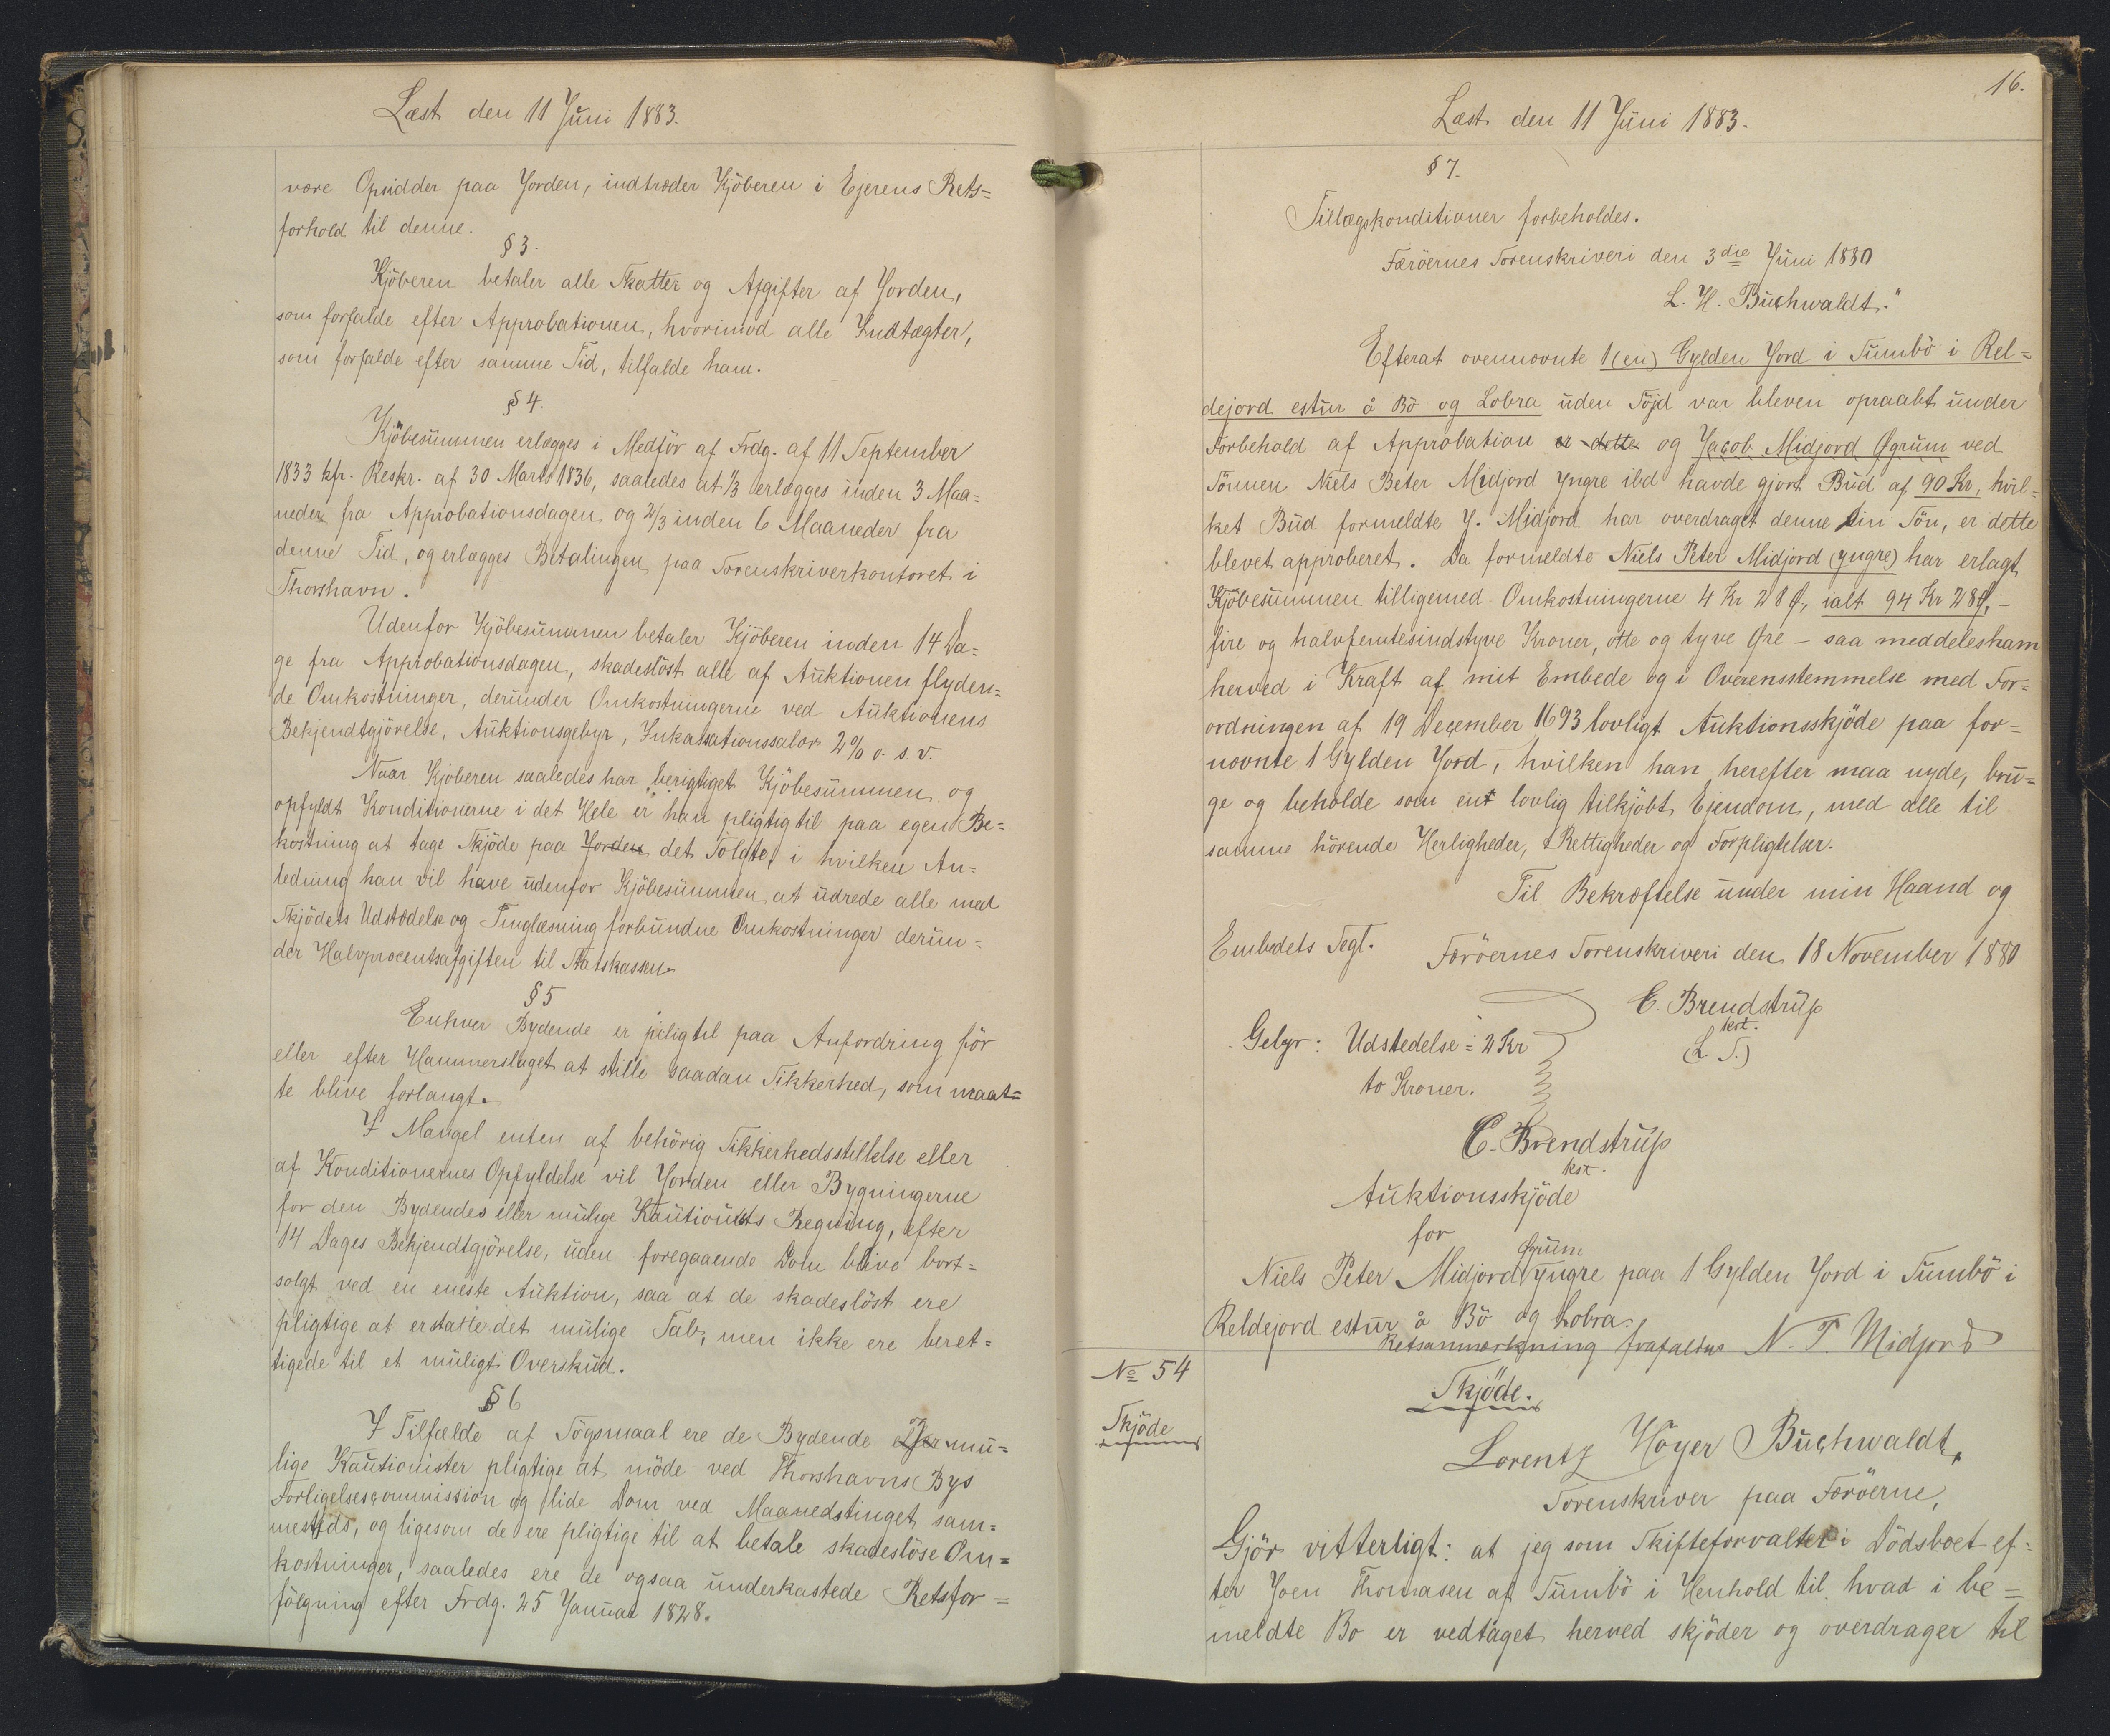 Læst den 11 Juni 1883.
være Opsidder paa Jorden, indtræder Kjöberen i Ejerens Rets=
forhold til denne.
§ 3.
Kjöberen betaler alle Skatter og Afgifter af Jorden,
som forfalde efter Approbationen, hvorimod alle Indtægter,
som forfalde efter samme Tid, tilfalde ham.
§ 4.
Kjöbesummen erlægges i Medför af Frdg. af 11 September
1833 kfr. Reskr. af 30 Marts 1836, saaledes at 1/3 erlægges inden 3 Maa=
neder fra Approbationsdagen og 2/3 inden 6 Maaneder fra
denne Tid, og erlægges Betalingen paa Sorenskriverkontoret i
Thorshavn.
Udenfor Kjöbesummen betaler Kjöberen inden 14 Da=
ge fra Approbationsdagen, skadeslöst alle af Auktionen flyden=
de Omkostninger, derunder Omkostningerne ved Auktionens
Bekjendtgjörelse, Auktionsgebyr, Inkassationssalær 2% o. s. v.
Naar Kjöberen saaledes har berigtiget Kjöbesummen og
opfyldt Konditionerne i det Hele er han pligtig til paa egen Be=
kostning at tage Skjöde paa Jorden det Solgte, i hvilken An=
ledning han vil have udenfor Kjöbesummen at udrede alle med
Skjödets Udstædelse og Tinglæsning forbundne Omkostninger derun=
der Halvprocentsafgiften til Statskassen.
§ 5
Enhver Bydende er pligtig til paa Anfordring för
eller efter Hammerslaget at stille saadan Sikkerhed, som maat=
te blive forlangt.
I Mangel enten af behörig Sikkerhedsstillelse eller
af Konditionernes Opfyldelse vil Jorden eller Bygningerne
for den Bydendes eller mulige Kautionists Regning, efter
14 Dages Bekjendtgjörelse, uden foregaaende Dom blive bort=
solgt ved en eneste Auktion, saa at de skadeslöst ere
pligtige at erstatte det mulige Tab, men ikke ere beret=
tigede til et muligt Overskud.
§ 6
I Tilfælde af Sögsmaal ere de Bydende eller mu=
lige Kautionister pligtige at möde ved Thorshavns Bys
Forligelsescommission og lide Dom ved Maanedstinget sam=
mesteds, og ligesom de ere pligtige til at betale skadeslöse Om=
kostninger, saaledes ere de ogsaa underkastede Retsfor=
fölgning efter Frdg. 25 Januar 1828.
16.
Læst den 11 Juni 1883.
§ 7.
Tillægskonditioner forbeholdes.
Færöernes Sorenskriveri den 3die Juni 1880
L. H. Buchwaldt."
Efterat ovennævnte 1 (en) Gylden Jord i Sumbö i Rel=
dejord estur å Bö og Lobra uden Föjd var bleven opraabt under
Forbehold af Approbation og Jacob Midjord Øgrum ved
Sönnen Niels Peter Midjord yngre ibd havde gjort Bud af 90 Kr, hvil=
ket Bud formeldte J. Midjord har overdraget denne sin Sön, er dette
blevet approberet. Da formeldte Niels Peter Midjord (yngre) har erlagt
Kjöbesummen tilligemed Omkostningerne 4 Kr 28 Ø, ialt 94 Kr 28 Ø, -
fire og halvfemtesindstyve Kroner, otte og tyve Øre - saa meddeles ham
herved i Kraft af mit Embede og i Overensstemmelse med For=
ordningen af 19 December 1693 lovligt Auktionsskjöde paa for=
nævnte 1 Gylden Jord, hvilken han herefter maa nyde, bru=
ge og beholde som ent lovlig tilkjöbt Ejendom, med alle til
samme hörende Herligheder, Rettigheder og Forpligtelser.
Til Bekræftelse under min Haand og
Embedets Segl. Færöernes Sorenskriveri den 18 November 1880
E. Brendstrup
kst.
(L. S.)
Gebyr: Udstedelse = 2 Kr
to Kroner.
C. Brendstrup
kst.
Auktionsskjöde
for
Øgrum
Niels Peter Midjord yngre paa 1 Gylden Jord i Sumbö i
Reldejord estur å Bö og Lobra.
Retsanmærkning frafaldes N. P. Midjord
No 54
Skjöde
Skjöde.
Lorentz Höyer Buchwaldt,
Sorenskriver paa Færöerne,
Gjör vitterligt: at jeg som Skifteforvalter i Dödsboet ef=
ter Joen Thomasen af Sumbö i Henhold til hvad i be=
meldte Bo er vedtaget herved skjöder og overdrager til